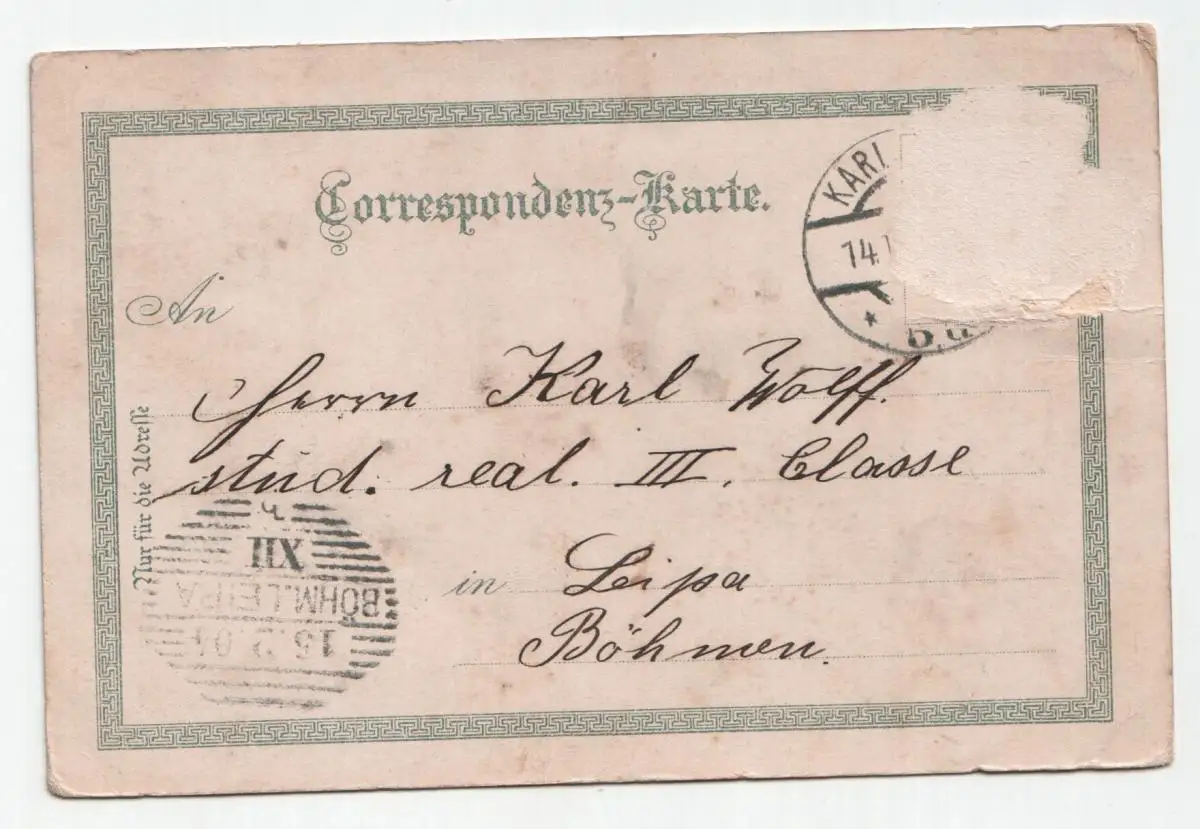 Correspondenz-Karte.
KARL
14.
b, a
An
Herrn Karl Wolff.
stud. real. III. Classe
in Leipa
Böhmen.
Nur für die Adresse
XII
BÖHM. LEIPA